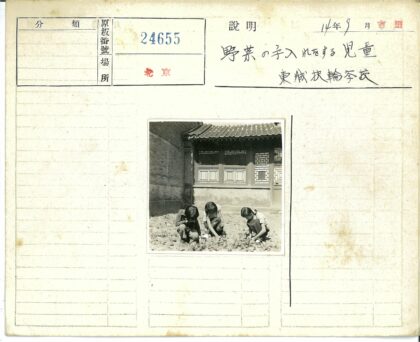 分類
原板番號
24655
場所
北京
説明
14年9月
野菜の手入れをする児童
東城扶輪学校